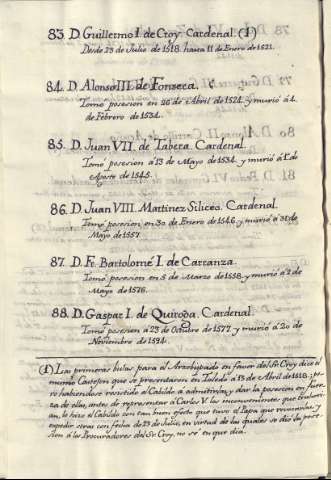 83. D. Guillermo I. de Croy. Cardenal. (1)
Desde 23 de Julio de 1518. hasta 11 de Enero de 1521.
84. D. Alonso III. de Fonseca.
Tomó posesion en 26 de Abril de 1524. y murió á 4.
de Febrero de 1534.
85. D. Juan VII. de Tabera. Cardenal.
Tomó posesion á 13 de Mayo de 1534. y murió á 1º de
Agosto de 1545.
86. D. Juan VIII. Martinez Siliceo. Cardenal.
Tomó posesion en 30 de Enero de 1546. y murió á 31 de
Mayo de 1557.
87. D. Fr. Bartolomé I. de Carranza.
Tomó posesion en 5 de Marzo de 1558. y murió á 2 de
Mayo de 1576.
88. D. Gaspar I. de Quiroga. Cardenal.
Tomó posesion á 23 de Octubre de 1577 y murió á 20 de
Noviembre de 1594.
(1) Las primeras bulas para el Arzobispado en favor del Sr. Croy dice el
mismo Castejon que se presentaron en Toledo á 13 de Abril de 1518; pe-
ro habiendose resistido el Cabildo á admitirlas, y dar la posesion en fuer-
za de ellas, antes de representar á Carlos V. los inconvenientes que embolvi-
an, lo hizo el Cabildo con tan buen efecto que tuvo el Papa que revocarlas, y
expedir otras con fecha de 23 de Julio, en virtud de las quales se dió la pose-
sion á los Procuradores del Sr. Croy, no se en que dia.